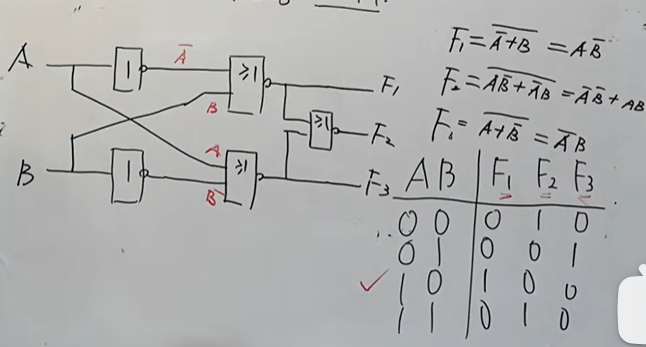 A
1
A̅
≥1
B
F₁
≥1
F₂
A
B
1
≥1
B̅
F₃
F₁ = \overline{A̅+B} = AB̅
F₂ = \overline{AB̅+A̅B} = A̅B̅+AB
F₃ = \overline{A+B̅} = A̅B
A B F₁ F₂ F₃
0 0 0 1 0
0 1 0 0 1
✓ 1 0 1 0 0
1 1 0 1 0